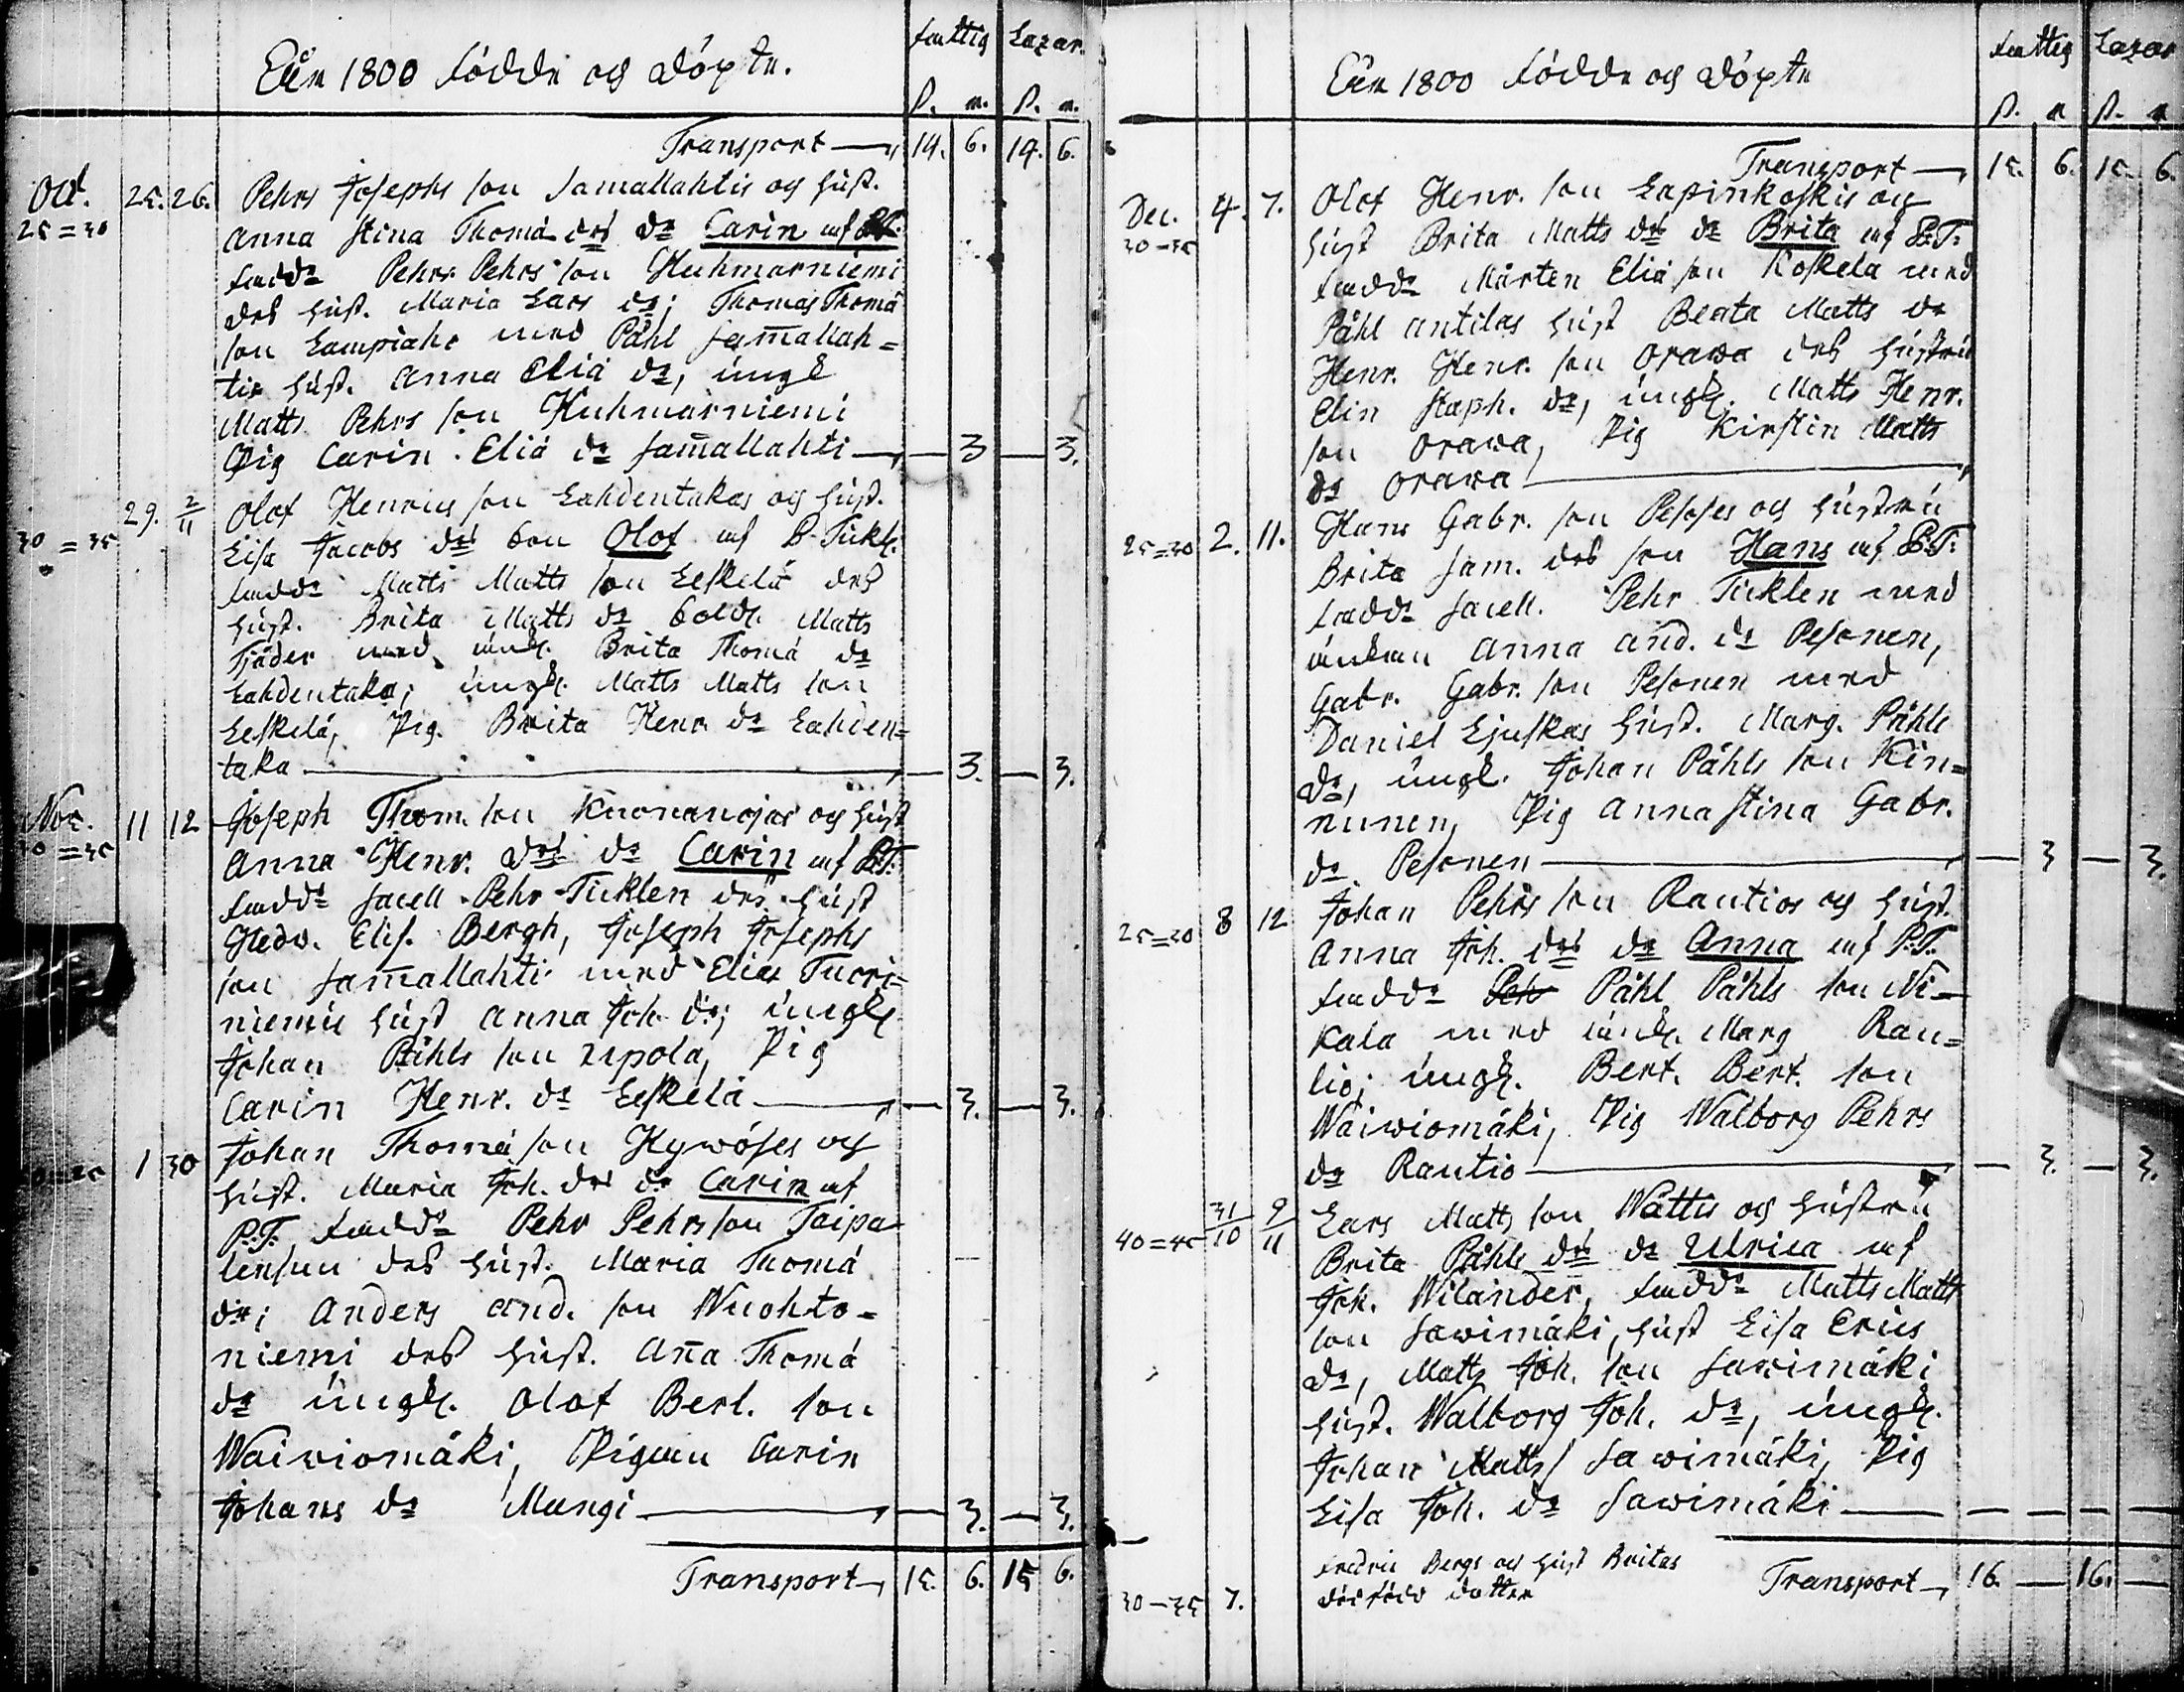 Åhr 1800 Födde och Döpte.
Fattig Lazar.
ß. r. ß. r.
Transport 14. 6. 14. 6.
Oct. 25. 26. Pehrs Josephs son Samallahtis och hust.
25=30 Anna Stina Thomä drs dr Carin af P.T.
Fadd. Pehrs Pehrs son Huhmarniemi
des hust. Maria Lars dr; Thomas Thomä
son Lampiaho med Påhl Sam̅allah=
tis hust. Anna Eliä dr, ungk
Matts Pehrs son Huhmarniemi
Pig Carin Eliä dr Sam̅allahti — 3 — 3.
29. 2/11 Olof Henrics son Lahdentakas och hust.
30=35 Lisa Jacobs drs son Olof af P. Tickl.
Fadd. Matts Matts son Leskelä des
hust. Brita Matts dr Sold. Matts
Tjäder med änk. Brita Thomä dr
Lahdentaka; ungk. Matts Matts son
Leskelä, Pig. Brita Henr. dr Lahden=
taka — 3. — 3.
Nov. 11 12 Joseph Thom. son Knonanojas och hust
30=35 Anna Henr. drs dr Carin af P.T.
Fadd. Sacell. Pehr Ticklen des hust
Hedv. Elis. Bergh, Joseph Josephs
son Sam̅allahti med Elias Tuori=
niemis hust Anna Joh. dr; ungk.
Johan Påhls son Uipola, Pig
Carin Henr. dr Leskelä — 3. — 3.
1 30 Johan Thomä son Hywöses och
hust. Maria Joh. drs dr Carin af
P.T. Fadd. Pehr Pehrs son Taipa
lensuu des hust. Maria Thomä
dr; Anders And. son Wuohto=
niemi des hust. An̅a Thomä
dr ungk. Olof Bert. son
Waiwiomäki, Pigan Carin
Johans dr Mangi — 3. — 3.
Transport 15. 6. 15 6.
Åhr 1800 Födde och Döpte
Fattig Lazar
ß. r ß. r
Transport 15. 6. 15. 6.
Dec. 4. 7. Olof Henr. son Lapinkoskis och
30-35 hust Brita Matts drs dr Brita af P.T.
Fadd. Mårten Eliä son Koskela med
Påhl Antilas hust Beata Matts dr
Henr. Henr. son Orawa des hustru
Elin Staph. dr, ungk. Matts Henr.
son Orawa, Pig Kirstin Matts
dr Orawa
25=30 2. 11. Hans Gabr. son Pesoses och hustru
Brita Sam. drs son Hans af P.T.
Fadd. Sacell. Pehr Ticklen med
änkan Anna And. dr Pesonen,
Gabr. Gabr. son Pesonen med
Daniel Ljuskas hust. Marg. Påhls
dr, ungk. Johan Påhls son Kin=
nunen, Pig Anna Stina Gabr.
dr Pesonen — 3 — 3.
25=30 8 12 Johan Pehrs son Rautios och hust.
Anna Joh. drs dr Anna af P.T.
Fadd. Peh Påhl Påhls son Ni=
kala med änk. Marg Rau=
tio; ungk. Bert. Bert. son
Waiwiomäki, Pig Walborg Pehrs
dr Rautio — 3. — 3.
40=45 31/10 9/11 Lars Matts son Wattis och hustru
Brita Påhls drs dr Ulrica af
Joh. Wilander, Fadd. Matts Matts
son Sawimäki, hust Lisa Erics
dr, Matts Joh. son Sawimäki
hust. Walborg Joh. dr, ungk.
Johan Matts / Sawimäki, Pig
Lisa Joh. dr Sawimäki — — — —
Fredric Bergs och hust Britas
30-35 7. dödfödd dotter
Transport 16. — 16. —